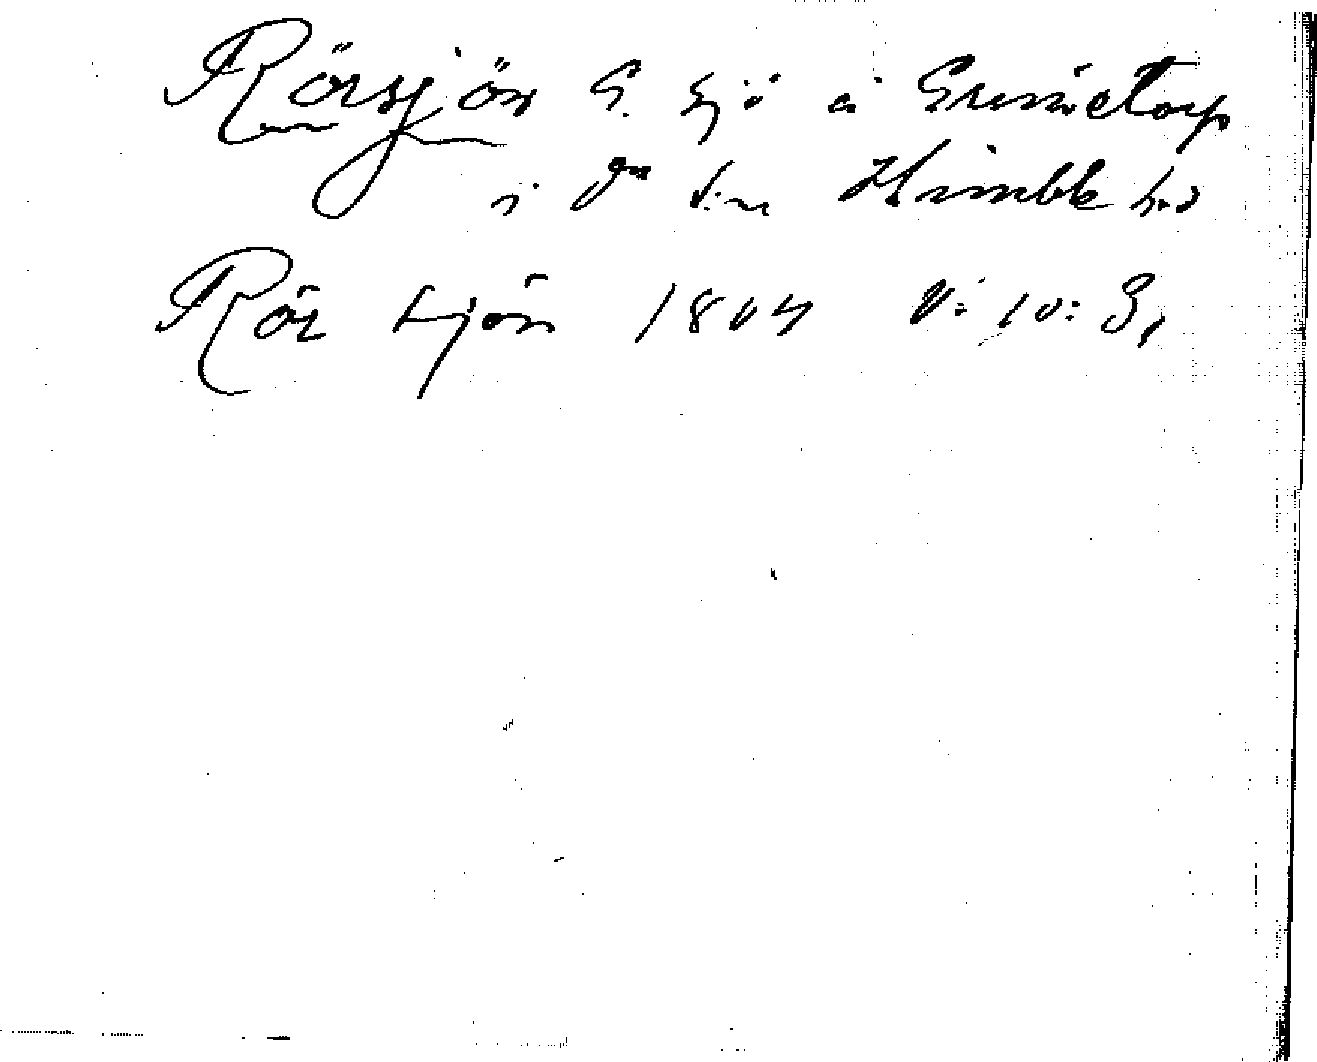 Rörsjön S. sjö å Grimetorp
i Gn s:n Himble h:d
Rör sjön 1804 V: 10: 3,